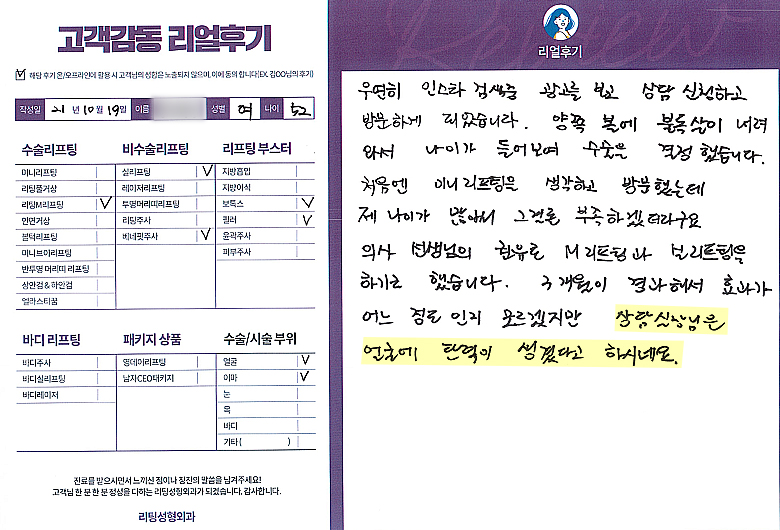 고객감동 리얼후기
해당 후기 온/오프라인에 활용 시 고객님의 성함은 노출되지 않으며, 이에 동의 합니다(EX. 김OO님의 후기)
작성일 21년 10월 19일 이름 성별 여 나이 52
수술리프팅
미니리프팅
리팅풀거상
리팅M리프팅 ✓
안면거상
블랙리프팅
미니브이리프팅
반투명 머리띠 리프팅
상안검 & 하안검
얼라스티꿈
비수술리프팅
실리프팅 ✓
레이저리프팅
투명머리띠리프팅
리팅주사
베네핏주사 ✓
리프팅 부스터
지방흡입
지방이식
보톡스 ✓
필러 ✓
윤곽주사
피부주사
바디 리프팅
바디주사
바디실리프팅
바디레이저
패키지 상품
영데이리프팅
남자CEO패키지
수술/시술 부위
얼굴 ✓
이마 ✓
눈
목
바디
기타 ( )
진료를 받으시면서 느끼신 점이나 칭찬의 말씀을 남겨주세요!
고객님 한 분 한 분 정성을 다하는 리팅성형외과가 되겠습니다. 감사합니다.
리팅성형외과
리얼후기
우연히 인스타 검색중 광고를 보고 상담 신청하고
방문하게 되었습니다. 양쪽 볼에 불독살이 내려
와서 나이가 들어보여 수술은 결정 했습니다.
처음엔 미니리프팅은 생각하고 방문했는데
제 나이가 많아서 그걸론 부족하겠더라구요
의사 선생님의 권유로 M리프팅과 실리프팅을
하기로 했습니다. 3개월이 결과해서 효과가
어느 정도 인지 모르겠지만 상담실장님은
얼굴에 탄력이 생겼다고 하시네요.